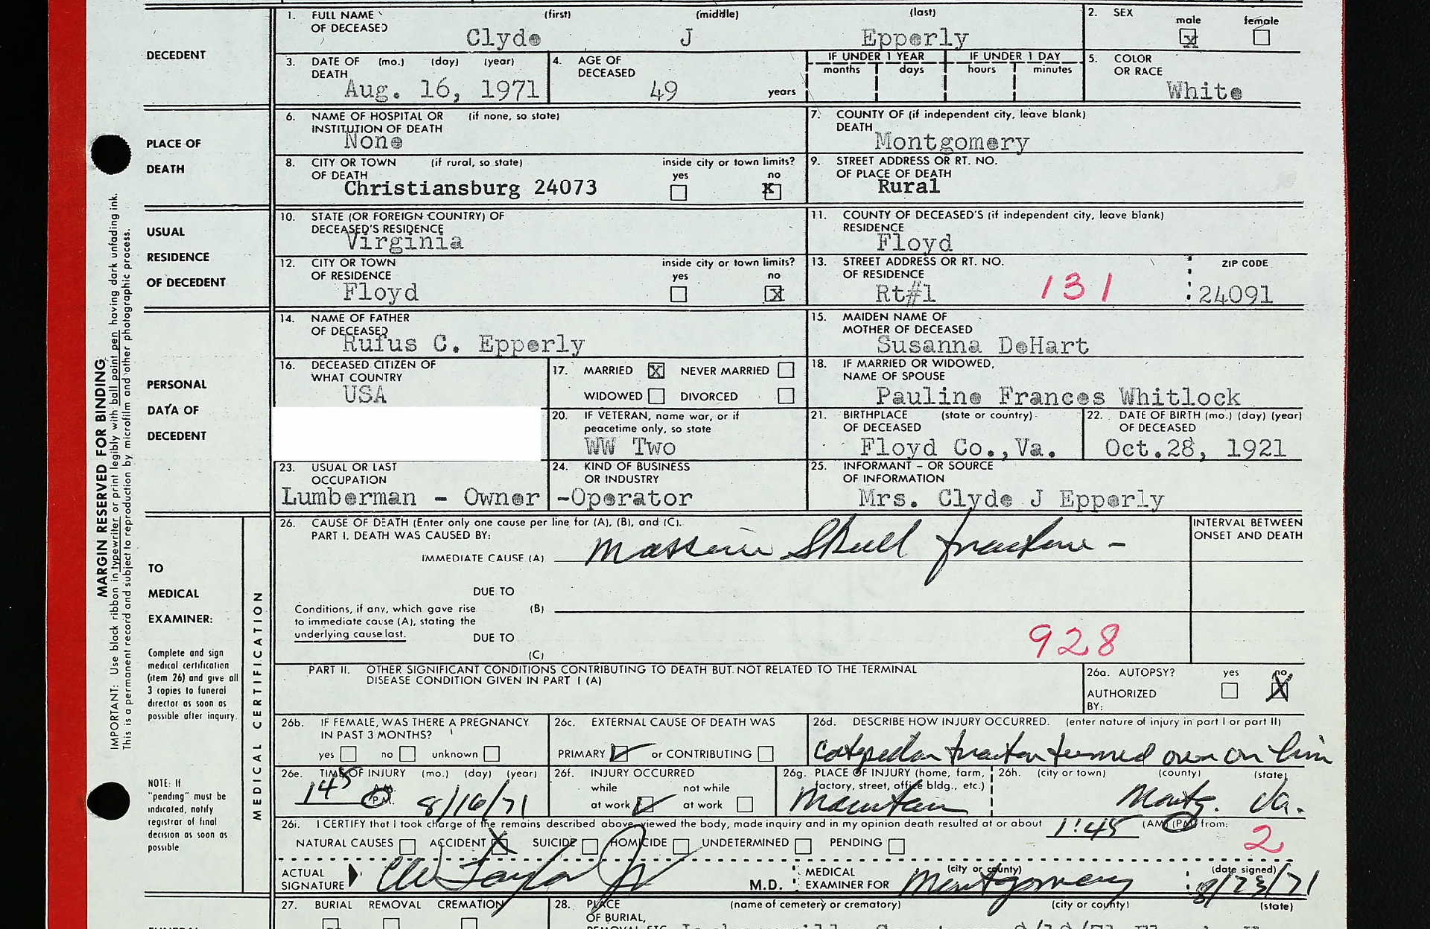 1. FULL NAME OF DECEASED (first) (middle) (last)
Clyde J Epperly
2. SEX male [x] female [ ]
DECEDENT
3. DATE OF DEATH (mo.) (day) (year)
Aug. 16, 1971
4. AGE OF DECEASED
49 years
IF UNDER 1 YEAR months days
IF UNDER 1 DAY hours minutes
5. COLOR OR RACE
White
PLACE OF DEATH
6. NAME OF HOSPITAL OR INSTITUTION OF DEATH (if none, so state)
None
7. COUNTY OF DEATH (if independent city, leave blank)
Montgomery
8. CITY OR TOWN OF DEATH (if rural, so state)
Christiansburg 24073
inside city or town limits? yes [ ] no [x]
9. STREET ADDRESS OR RT. NO. OF PLACE OF DEATH
Rural
USUAL RESIDENCE OF DECEDENT
10. STATE (OR FOREIGN COUNTRY) OF DECEASED'S RESIDENCE
Virginia
11. COUNTY OF DECEASED'S RESIDENCE (if independent city, leave blank)
Floyd
12. CITY OR TOWN OF RESIDENCE
Floyd
inside city or town limits? yes [ ] no [x]
13. STREET ADDRESS OR RT. NO. OF RESIDENCE
Rt#1 131
ZIP CODE
24091
PERSONAL DATA OF DECEDENT
14. NAME OF FATHER OF DECEASED
Rufus C. Epperly
15. MAIDEN NAME OF MOTHER OF DECEASED
Susanna DeHart
16. DECEASED CITIZEN OF WHAT COUNTRY
USA
17. MARRIED [x] NEVER MARRIED [ ]
WIDOWED [ ] DIVORCED [ ]
18. IF MARRIED OR WIDOWED, NAME OF SPOUSE
Pauline Frances Whitlock
20. IF VETERAN, name war, or if peacetime only, so state
WW Two
21. BIRTHPLACE OF DECEASED (state or country)
Floyd Co.,Va.
22. DATE OF BIRTH OF DECEASED (mo.) (day) (year)
Oct.28, 1921
23. USUAL OR LAST OCCUPATION
Lumberman - Owner
24. KIND OF BUSINESS OR INDUSTRY
-Operator
25. INFORMANT - OR SOURCE OF INFORMATION
Mrs. Clyde J Epperly
MARGIN RESERVED FOR BINDING
IMPORTANT: Use black ribbon in typewriter or print legibly with ball point pen having dark unfading ink.
This is a permanent record and subject to reproduction by microfilm and other photographic process.
MEDICAL CERTIFICATION
TO MEDICAL EXAMINER:
Complete and sign
medical certification
(item 26) and give all
3 copies to funeral
director as soon as
possible after inquiry.
NOTE: If
"pending" must be
indicated, notify
registrar of final
decision as soon as
possible
26. CAUSE OF DEATH (Enter only one cause per line for (A), (B), and (C).
PART I. DEATH WAS CAUSED BY:
INTERVAL BETWEEN ONSET AND DEATH
IMMEDIATE CAUSE (A) Massive Skull fracture -
DUE TO
(B)
Conditions, if any, which gave rise
to immediate cause (A), stating the
underlying cause last.
DUE TO
(C)
928
PART II. OTHER SIGNIFICANT CONDITIONS CONTRIBUTING TO DEATH BUT NOT RELATED TO THE TERMINAL
DISEASE CONDITION GIVEN IN PART I (A)
26a. AUTOPSY? yes [ ] no [x]
AUTHORIZED BY:
26b. IF FEMALE, WAS THERE A PREGNANCY IN PAST 3 MONTHS?
yes [ ] no [ ] unknown [ ]
26c. EXTERNAL CAUSE OF DEATH WAS
PRIMARY [✓] or CONTRIBUTING [ ]
26d. DESCRIBE HOW INJURY OCCURRED. (enter nature of injury in part I or part II)
tractor turned over on him
26e. TIME OF INJURY (mo.) (day) (year)
145 P.M. 8/16/71
26f. INJURY OCCURRED
while at work [✓] not while at work [ ]
26g. PLACE OF INJURY (home, farm, factory, street, office bldg., etc.)
Mountain
26h. (city or town) (county) (state)
Montg. Va.
26i. I CERTIFY that I took charge of the remains described above, viewed the body, made inquiry and in my opinion death resulted at or about 1:45 (AM) (PM) from:
NATURAL CAUSES [ ] ACCIDENT [x] SUICIDE [ ] HOMICIDE [ ] UNDETERMINED [ ] PENDING [ ]
2
ACTUAL SIGNATURE Taylor Jr M.D.
MEDICAL EXAMINER FOR (city or county) Montgomery
(date signed) 8/23/71
27. BURIAL REMOVAL CREMATION
28. PLACE OF BURIAL, (name of cemetery or crematory) (city or county) (state)